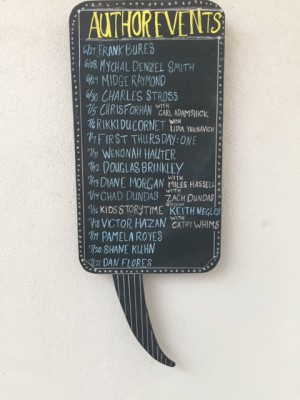 AUTHOR EVENTS
6/27 FRANK BURES
6/28 MYCHAL DENZEL SMITH
6/29 MIDGE RAYMOND
6/30 CHARLES STROSS
7/5 CHRIS FORHAN WITH CARL ADAMSHICK
7/6 RIKKI DUCORNET WITH LIDIA YUKNAVICH
7/7 FIRST THURSDAY: ONE
7/11 WENONAH HAUTER
7/12 DOUGLAS BRINKLEY
7/13 DIANE MORGAN WITH MILES HASSELL
7/14 CHAD DUNDAS WITH ZACH DUNDAS
7/16 KIDS STORYTIME KEITH NEGLEY
7/18 VICTOR HAZAN WITH CATHY WHIMS
7/19 PAMELA ROYES
7/20 SHANE KUHN
DAN FLORES